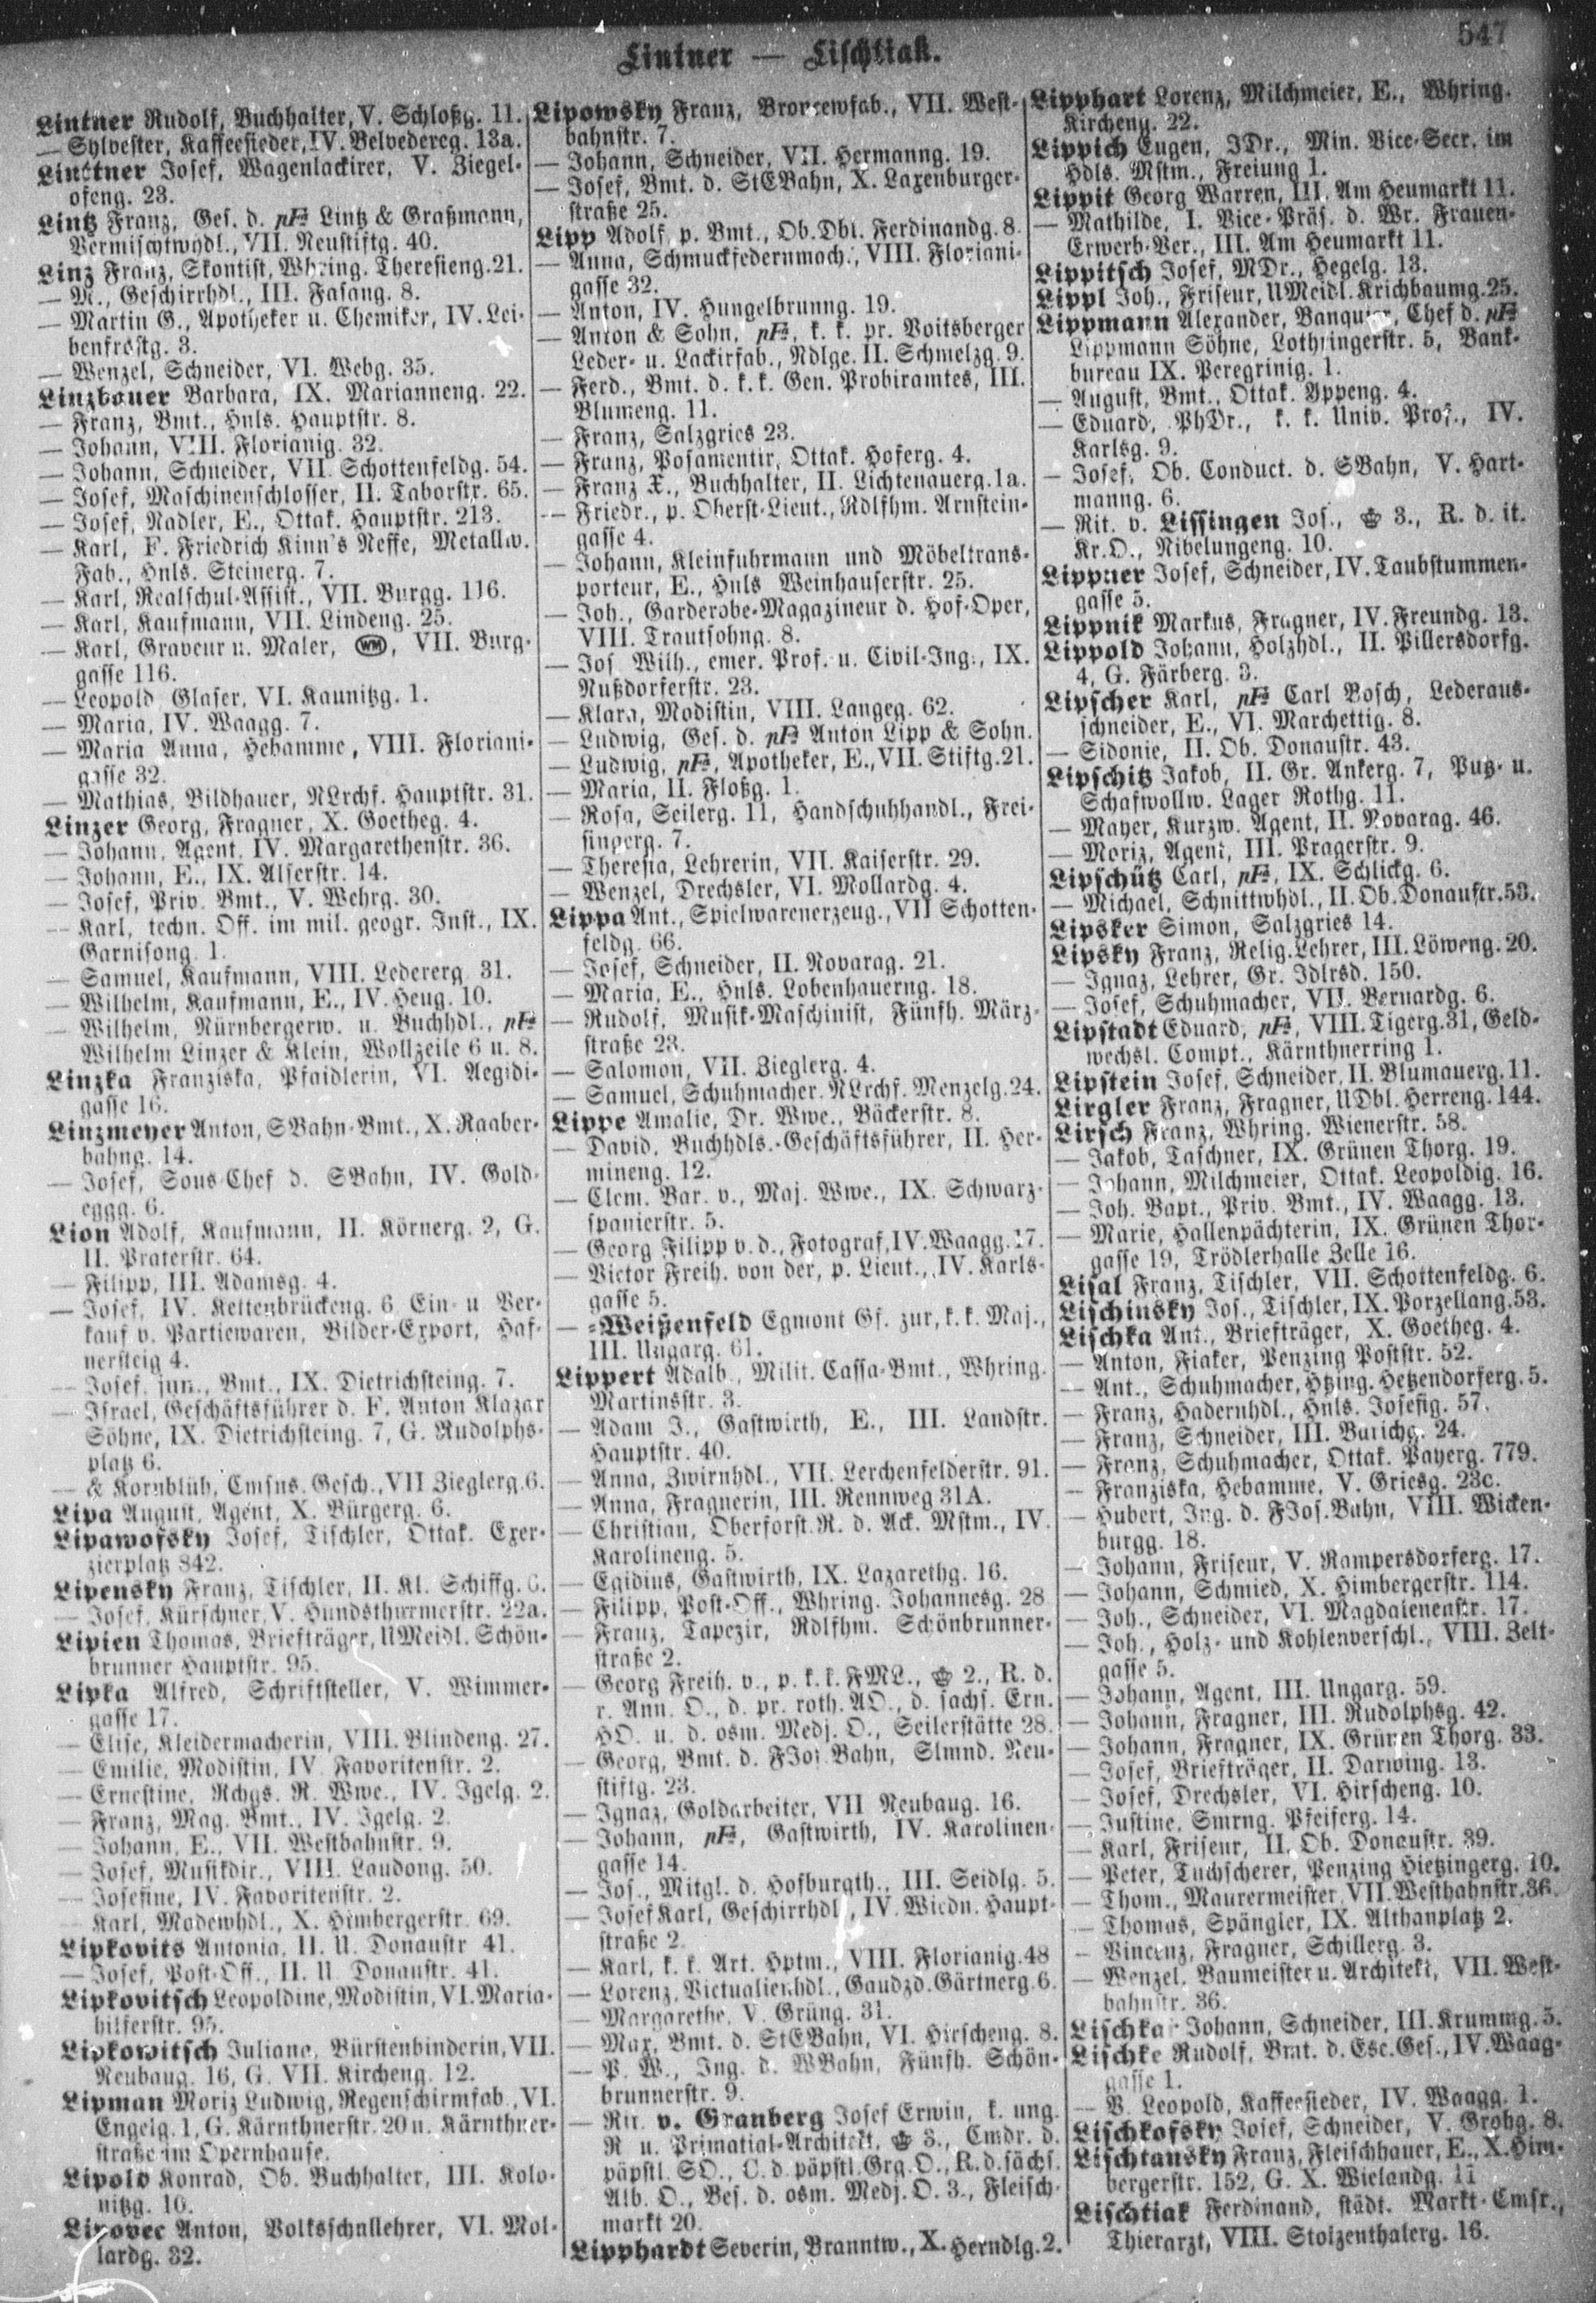 Lintner — Lischtiak.
547
Lintner Rudolf, Buchhalter, V. Schloßg. 11.
— Sylvester, Kaffeesieder, IV. Belvedereg. 13a.
Linttner Josef, Wagenlackirer, V. Ziegel-
ofeng. 23.
Lintz Franz, Ges. d. pFa Lintz & Graßmann,
Vermischtwhdl., VII. Neustiftg. 40.
Linz Franz, Skontist, Whring. Theresieng. 21.
— M., Geschirrhdl., III. Fasang. 8.
— Martin G., Apotheker u. Chemiker, IV. Lei-
benfrostg. 3.
— Wenzel, Schneider, VI. Webg. 35.
Linzbauer Barbara, IX. Marianneng. 22.
— Franz, Bmt., Hnls. Hauptstr. 8.
— Johann, VIII. Florianig. 32.
— Johann, Schneider, VII. Schottenfeldg. 54.
— Josef, Maschinenschlosser, II. Taborstr. 65.
— Josef, Nadler, E., Ottak. Hauptstr. 213.
— Karl, F. Friedrich Kinn's Neffe, Metallw.
Fab., Hnls. Steinerg. 7.
— Karl, Realschul-Assist., VII. Burgg. 116.
— Karl, Kaufmann, VII. Lindeng. 25.
— Karl, Graveur u. Maler, WM, VII. Burg-
gasse 116.
— Leopold Glaser, VI. Kaunitzg. 1.
— Maria, IV. Waagg. 7.
— Maria Anna, Hebamme, VIII. Floriani-
gasse 32.
— Mathias, Bildhauer, NLrchf. Hauptstr. 31.
Linzer Georg, Fragner, X. Goetheg. 4.
— Johann, Agent, IV. Margarethenstr. 36.
— Johann, E., IX. Alserstr. 14.
— Josef, Priv. Bmt., V. Wehrg. 30.
— Karl, techn. Off. im mil. geogr. Inst., IX.
Garnisong. 1.
— Samuel, Kaufmann, VIII. Ledererg. 31.
— Wilhelm, Kaufmann, E., IV. Heug. 10.
— Wilhelm, Nürnbergerw. u. Buchhdl., pFa
Wilhelm Linzer & Klein, Wollzeile 6 u. 8.
Linzka Franziska, Pfaidlerin, VI. Aegidi-
gasse 16.
Linzmeyer Anton, SBahn-Bmt., X. Raaber-
bahng. 14.
— Josef, Sous-Chef d. SBahn, IV. Gold-
eggg. 6.
Lion Adolf, Kaufmann, II. Körnerg. 2, G.
II. Praterstr. 64.
— Filipp, III. Adamsg. 4.
— Josef, IV. Kettenbrückeng. 6 Ein- u Ver-
kauf v. Partiewaren, Bilder-Export, Haf-
nersteig 4.
— Josef, jun., Bmt., IX. Dietrichsteing. 7.
— Israel, Geschäftsführer d. F. Anton Klazar
Söhne, IX. Dietrichsteing. 7, G. Rudolphs-
platz 6.
— & Kornblüh, Cmsns. Gesch., VII Zieglerg. 6.
Lipa August, Agent, X. Bürgerg. 6.
Lipawofsky Josef, Tischler, Ottak. Exer-
zierplatz 842.
Lipensky Franz, Tischler, II. Kl. Schiffg.
— Josef, Kürschner, V. Hundsthurmerstr. 22a.
Lipien Thomas, Briefträger, UMeidl. Schön-
brunner Hauptstr. 95.
Lipka Alfred, Schriftsteller, V. Wimmer-
gasse 17.
— Elise, Kleidermacherin, VIII. Blindeng. 27.
— Emilie, Modistin, IV. Favoritenstr. 2.
— Ernestine, Rchgs. R. Wwe., IV. Igelg. 2.
— Franz, Mag. Bmt., IV. Igelg. 2.
— Johann, E., VII. Westbahnstr. 9.
— Josef, Musikdir., VIII. Laudong. 50.
— Josefine, IV. Favoritenstr. 2.
— Karl, Modewhdl., X. Himbergerstr. 69.
Lipkovits Antonia, II. U. Donaustr 41.
— Josef, Post-Off., II. U. Donaustr. 41.
Lipkovitsch Leopoldine, Modistin, VI. Maria-
hilferstr. 95.
Lipkowitsch Juliana, Bürstenbinderin, VII.
Neubaug. 16, G. VII. Kircheng. 12.
Lipman Moriz Ludwig, Regenschirmfab., VI.
Engelg. 1, G. Kärnthnerstr. 20 u. Kärnthner-
straße im Opernhause.
Lipold Konrad, Ob. Buchhalter, III. Kolo-
nitzg. 10.
Lipovec Anton, Volksschullehrer, VI. Mol-
lardg. 32.
Lipowsky Franz, Broncewfab., VII. West-
bahnstr. 7.
— Johann, Schneider, VII. Hermanng. 19.
— Josef, Bmt. d. StEBahn, X. Laxenburger-
straße 25.
Lipp Adolf, p. Bmt., Ob.Dbl. Ferdinandg. 8.
— Anna, Schmuckfedernmach., VIII. Floriani-
gasse 32.
— Anton, IV. Hungelbrunng. 19.
— Anton & Sohn, pFa, k. k. pr. Voitsberger
Leder- u. Lackirfab., Ndlge. II. Schmelzg. 9.
— Ferd., Bmt. d. k. k. Gen. Probiramtes, III.
Blumeng. 11.
— Franz, Salzgries 23.
— Franz, Posamentir, Ottak. Hoferg. 4.
— Franz X., Buchhalter, II. Lichtenauerg. 1a.
— Friedr., p. Oberst-Lieut., Rdlfhm. Arnstein-
gasse 4.
— Johann, Kleinfuhrmann und Möbeltrans-
porteur, E., Hnls Weinhauserstr. 25.
— Joh., Garderobe-Magazineur d. Hof-Oper,
VIII. Trautsohng. 8.
— Jos. Wilh., emer. Prof. u. Civil-Ing., IX.
Nußdorferstr. 23.
— Klara, Modistin, VIII. Langeg. 62.
— Ludwig, Ges. d. pFa Anton Lipp & Sohn.
— Ludwig, pFa, Apotheker, E., VII. Stiftg. 21.
— Maria, II. Floßg. 1.
— Rosa, Seilerg. 11, Handschuhhandl., Frei-
singerg. 7.
— Theresia, Lehrerin, VII. Kaiserstr. 29.
— Wenzel, Drechsler, VI. Mollardg. 4.
Lippa Ant., Spielwarenerzeug., VII Schotten-
feldg. 66.
— Josef, Schneider, II. Novarag. 21.
— Maria, E., Hnls. Lobenhauerng. 18.
— Rudolf, Musik-Maschinist, Fünfh. März-
straße 23.
— Salomon, VII. Zieglerg. 4.
— Samuel, Schuhmacher, NLrchf. Menzelg. 24.
Lippe Amalie, Dr. Wwe., Bäckerstr. 8.
— David, Buchhdls.-Geschäftsführer, II. Her-
mineng. 12.
— Clem. Bar. v., Maj. Wwe., IX. Schwarz-
spanierstr. 5.
— Georg Filipp v. d., Fotograf, IV. Waagg. 17.
— Victor Freih. von der, p. Lieut., IV. Karls-
gasse 5.
— -Weißenfeld Egmont Gf. zur, k. k. Maj.,
III. Ungarg. 61.
Lippert Adalb., Milit. Cassa-Bmt., Whring.
Martinsstr. 3.
— Adam J., Gastwirth, E., III. Landstr.
Hauptstr. 40.
— Anna, Zwirnhdl., VII. Lerchenfelderstr. 91.
— Anna, Fragnerin, III. Rennweg 31A.
— Christian, Oberforst.R. d. Ack. Mstm., IV.
Karolineng. 5.
— Egidius, Gastwirth, IX. Lazarethg. 16.
— Filipp, Post-Off., Whring. Johannesg. 28
— Franz, Tapezir, Rdlfhm. Schönbrunner-
straße 2.
— Georg Freih. v., p. k. k. FML., 2., R. d.
r. Ann. O., d. pr. roth. AO., d. sächs. Ern.
HO. u. d. osm. Medj. O., Seilerstätte 28.
— Georg, Bmt. d. FJos.Bahn, Slmnd. Neu-
stiftg. 23.
— Ignaz, Goldarbeiter, VII Neubaug. 16.
— Johann, pFa, Gastwirth, IV. Karolinen-
gasse 14.
— Jos., Mitgl. d. Hofburgth., III. Seidlg. 5.
— Josef Karl, Geschirrhdl., IV. Wiedn. Haupt-
straße 2.
— Karl, k. k. Art. Hptm., VIII. Florianig. 48
— Lorenz, Victualienhdl., Gaudzd. Gärtnerg. 6.
— Margarethe, V. Grüng. 31.
— Max, Bmt. d. StEBahn, VI. Hirscheng. 8.
— P. W., Ing. d. WBahn, Fünfh. Schön-
brunnerstr. 9.
— Rit. v. Granberg Josef Erwin, k. ung.
R u. Primatial-Architekt, 3., Cmdr. d.
päpstl. SO., C. d. päpstl. Grg. O., R. d. sächs.
Alb. O., Bes. d. osm. Medj. O. 3., Fleisch-
markt 20.
Lipphardt Severin, Branntw., X. Herndlg. 2.
Lipphart Lorenz, Milchmeier, E., Whring.
Kircheng. 22.
Lippich Eugen, JDr., Min. Vice-Secr. im
Hdls. Mstm., Freiung 1.
Lippit Georg Warren, III. Am Heumarkt 11.
— Mathilde, I. Vice-Präs. d. Wr. Frauen-
Erwerb-Ver., III. Am Heumarkt 11.
Lippitsch Josef, MDr., Hegelg. 13.
Lippl Joh., Friseur, UMeidl. Krichbaumg. 25.
Lippmann Alexander, Banquier, Chef d. pFa
Lippmann Söhne, Lothringerstr. 5, Bank-
bureau IX. Peregrinig. 1.
— August, Bmt., Ottak. Yppeng. 4.
— Eduard, PhDr., k. k. Univ. Prof., IV.
Karlsg. 9.
— Josef, Ob. Conduct. d. SBahn, V. Hart-
manng. 6.
— Rit. v. Lissingen Jos., 3., R. d. it.
Kr.O., Nibelungeng. 10.
Lippner Josef, Schneider, IV. Taubstummen-
gasse 5.
Lippnik Markus, Fragner, IV. Freundg. 13.
Lippold Johann, Holzhdl., II. Pillersdorfg.
4, G. Färberg. 3.
Lipscher Karl, pFa Carl Bosch, Lederaus-
schneider, E., VI. Marchettig. 8.
— Sidonie, II. Ob. Donaustr. 43.
Lipschitz Jakob, II. Gr. Ankerg. 7, Putz- u.
Schafwollw. Lager Rothg. 11.
— Mayer, Kurzw. Agent, II. Novarag. 46.
— Moriz, Agent, III. Pragerstr. 9.
Lipschütz Carl, pFa, IX. Schlickg. 6.
— Michael, Schnittwhdl., II. Ob. Donaustr. 53.
Lipsker Simon, Salzgries 14.
Lipsky Franz, Relig. Lehrer, III. Löweng. 20.
— Ignaz, Lehrer, Gr. Jdlrsd. 150.
— Josef, Schuhmacher, VII. Bernardg. 6.
Lipstadt Eduard, pFa, VIII. Tigerg. 31, Geld-
wechsl. Compt., Kärnthnerring 1.
Lipstein Josef, Schneider, II. Blumauerg. 11.
Lirgler Franz, Fragner, UDbl. Herreng. 144.
Lirsch Franz, Whring. Wienerstr. 58.
— Jakob, Taschner, IX. Grünen Thorg. 19.
— Johann, Milchmeier, Ottak. Leopoldig. 16.
— Joh. Bapt., Priv. Bmt., IV. Waagg. 13.
— Marie, Hallenpächterin, IX. Grünen Thor-
gasse 19, Trödlerhalle Zelle 16.
Lisal Franz, Tischler, VII. Schottenfeldg. 6.
Lischinsky Jos., Tischler, IX. Porzellang. 53.
Lischka Ant., Briefträger, X. Goetheg. 4.
— Anton, Fiaker, Penzing Poststr. 52.
— Ant., Schuhmacher, Htzing. Hetzendorferg. 5.
— Franz, Hadernhdl., Hnls. Josefig. 57.
— Franz, Schneider, III. Barichg. 24.
— Franz, Schuhmacher, Ottak. Payerg. 779.
— Franziska, Hebamme, V. Griesg. 23c.
— Hubert, Ing. d. FJos.Bahn, VIII. Wicken-
burgg. 18.
— Johann, Friseur, V. Rampersdorferg. 17.
— Johann, Schmied, X. Himbergerstr. 114.
— Joh., Schneider, VI. Magdalenenstr. 17.
— Joh., Holz- und Kohlenverschl., VIII. Zelt-
gasse 5.
— Johann, Agent, III. Ungarg. 59.
— Johann, Fragner, III. Rudolphsg. 42.
— Johann, Fragner, IX. Grünen Thorg. 33.
— Josef, Briefträger, II. Darwing. 13.
— Josef, Drechsler, VI. Hirscheng. 10.
— Justine, Smrng. Pfeiferg. 14.
— Karl, Friseur, II. Ob. Donaustr. 39.
— Peter, Tuchscherer, Penzing Hietzingerg. 10.
— Thom., Maurermeister, VII. Westbahnstr. 36.
— Thomas, Spängler, IX. Althanplatz 2.
— Vincenz, Fragner, Schillerg. 3.
— Wenzel, Baumeister u. Architekt, VII. West-
bahnstr. 36.
Lischkar Johann, Schneider, III. Krummg. 5.
Lischke Rudolf, Bmt. d. Esc. Ges., IV. Waag-
gasse 1.
— V. Leopold, Kaffeesieder, IV. Waagg. 1.
Lischkofsky Josef, Schneider, V. Grohg. 8.
Lischtansky Franz, Fleischhauer, E., X. Him-
bergerstr. 152, G. X. Wielandg. 11
Lischtiak Ferdinand, städt. Markt-Cmsr.,
Thierarzt, VIII. Stolzenthalerg. 16.